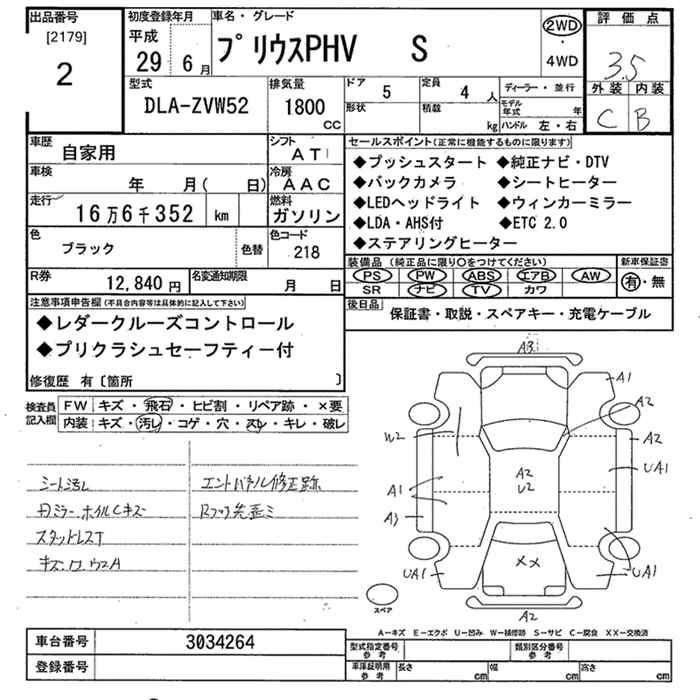 出品番号
[2179]
2
初度登録年月
平成
29 6月
車名・グレード
プリウスPHV S
2WD
・
4WD
評価点
3.5
外装 内装
C B
型式
DLA-ZVW52
排気量
1800
CC
ドア
5
定員
4
人
形状
積載
kg
ディーラー・並行
モデル年式
年
ハンドル 左・右
車歴
自家用
シフト
AT
車検
年 月( 日)
冷房
AAC
走行
16万6千352 km
燃料
ガソリン
色
ブラック
色替
色コード
218
R券
12,840 円
名変通知期限
月 日
セールスポイント(正常に機能するものに限ります)
◆プッシュスタート ◆純正ナビ・DTV
◆バックカメラ ◆シートヒーター
◆LEDヘッドライト ◆ウィンカーミラー
◆LDA・AHS付 ◆ETC 2.0
◆ステアリングヒーター
装備品 (純正品に限り○をつけてください)
PS PW ABS エアB AW
SR ナビ TV カワ
新車保証書
有・無
後日品
保証書・取説・スペアキー・充電ケーブル
注意事項申告欄(不具合内容等は具体的に記入して下さい)
◆レダークルーズコントロール
◆プリクラシュセーフティー付
修復歴 有〔箇所 〕
検査員
記入欄
FW キズ・飛石・ヒビ割・リペア跡・×要
内装 キズ・汚レ・コゲ・穴・スレ・キレ・破レ
シート汚レ
ホイルCキズ
スタットレスT
エントパネル修正跡
A3
A1
A2
W2
A2
A2
U2
UA1
A1
A3
××
UA1
UA1
A2
スペア
A－キズ E－エクボ U－凹み W－補修跡 S－サビ C－腐食 XX－交換済
車台番号
3034264
登録番号
型式指定番号
参考
類別区分番号
参考
車庫証明用
参考
長さ
cm
幅
cm
高さ
cm